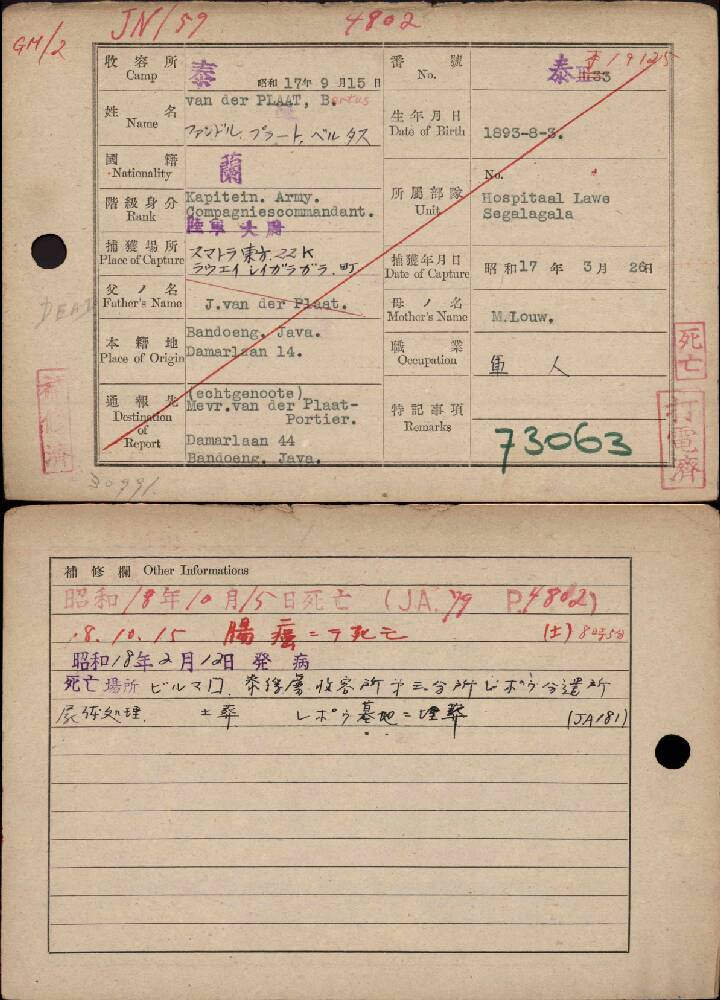 JN/59
4802
GM/2
收容所
Camp
泰
昭和17年9月15日
番號
No.
泰III
33
姓名
Name
van der PLAAT, Bertus
ファンドル.プラート.ベルタス
生年月日
Date of Birth
1893-8-3.
國籍
Nationality
蘭
階級身分
Rank
Kapitein. Army.
Compagniescommandant.
陸軍大尉
所屬部隊
Unit
No.
Hospitaal Lawe
Segalagala
捕獲場所
Place of Capture
スマトラ東方.22K
ラウエイ レイガラガラ.町
捕獲年月日
Date of Capture
昭和17年3月26日
父ノ名
Father's Name
J.van der Plaat.
母ノ名
Mother's Name
M.Louw.
本籍地
Place of Origin
Bandoeng, Java.
Damarlaan 14.
職業
Occupation
軍人
通報先
Destination
of
Report
(echtgenoote)
Mevr.van der Plaat-
Portier.
Damarlaan 44
Bandoeng, Java.
特記事項
Remarks
73063
DEAD
死亡
打電濟
補修濟
30991
補修欄 Other Informations
昭和18年10月15日死亡 (JA.79 P.4802)
18.10.15 腸癌ニテ死亡
昭和18年2月12日 発病
死亡場所 ビルマ国.泰俘虜收容所第三分所レポウ分遣所
屍体処理. 土葬 レポウ墓地ニ埋葬 (JA181)